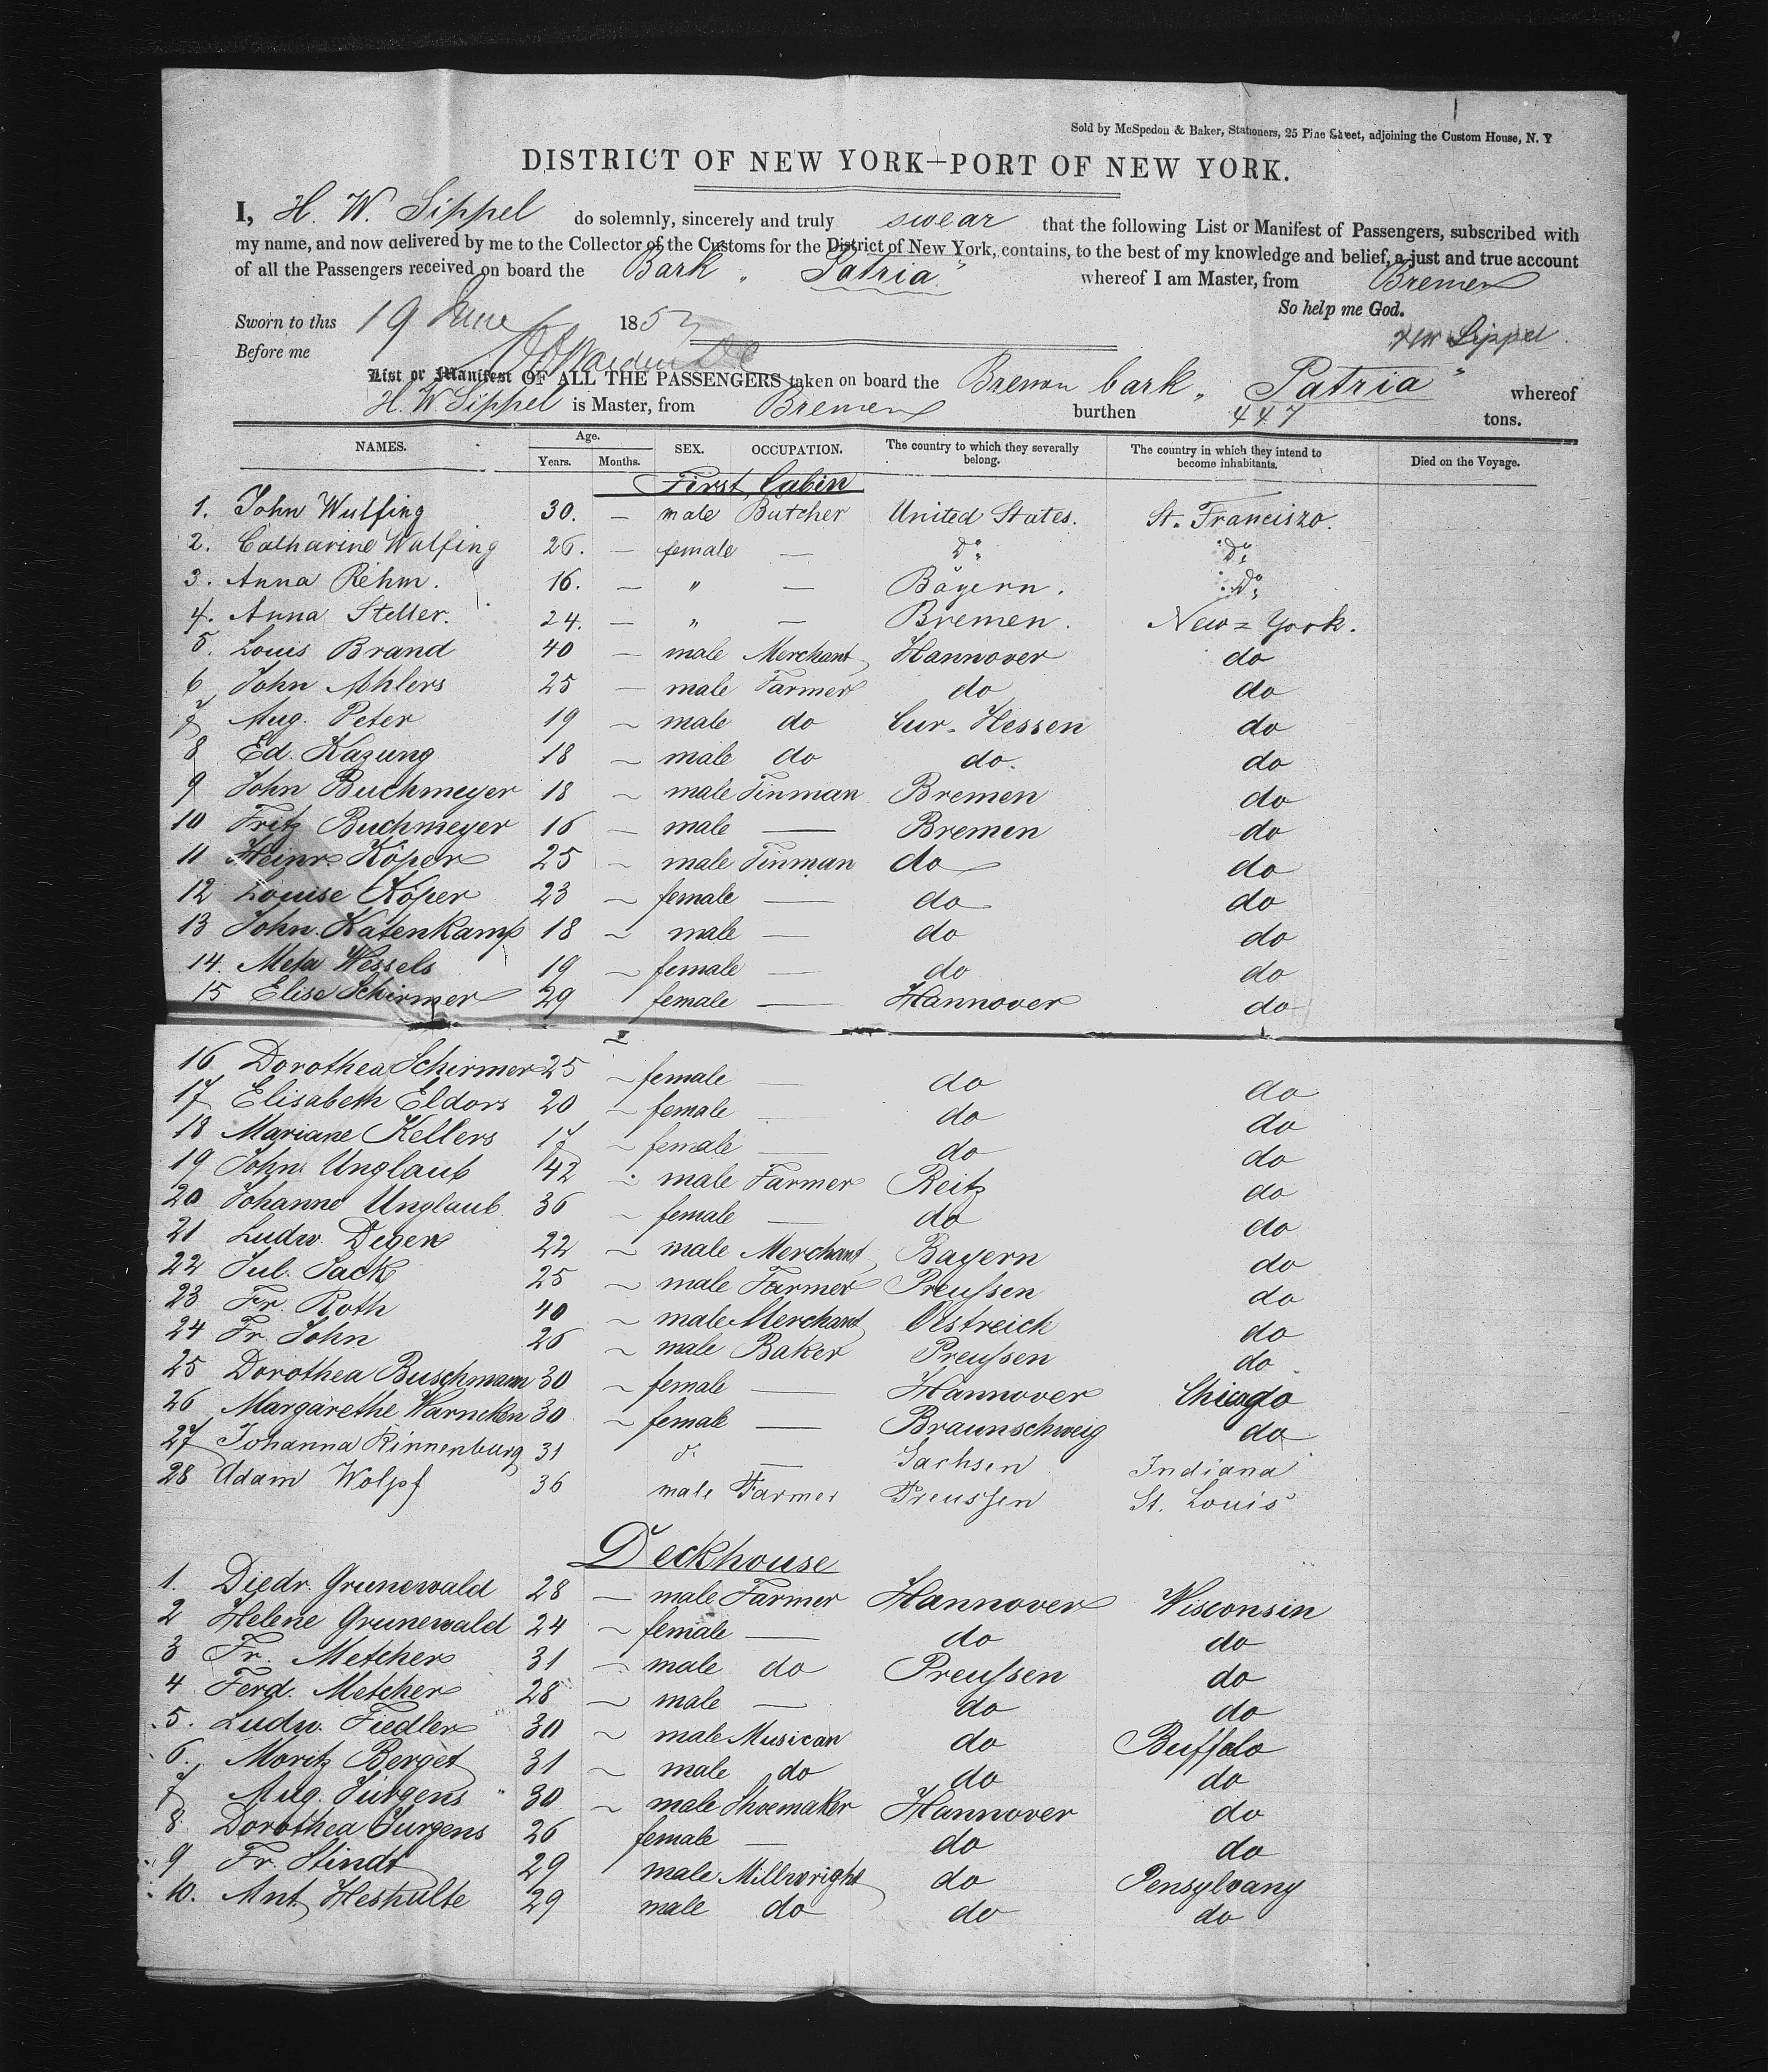 Sold by McSpedon & Baker, Stationers, 25 Pine Street, adjoining the Custom House, N. Y
DISTRICT OF NEW YORK—PORT OF NEW YORK.
I, H. W. Sippel do solemnly, sincerely and truly swear that the following List or Manifest of Passengers, subscribed with
my name, and now delivered by me to the Collector of the Customs for the District of New York, contains, to the best of my knowledge and belief, a just and true account
of all the Passengers received on board the Bark „ Patria " whereof I am Master, from Bremen
So help me God.
Sworn to this 19 June 1853
HW Sippel.
Before me
List or Manifest OF ALL THE PASSENGERS taken on board the Bremen bark „ Patria " whereof
H. W. Sippel is Master, from Bremen burthen 447 tons.
NAMES. Age. Years. Months. SEX. OCCUPATION. The country to which they severally belong. The country in which they intend to become inhabitants. Died on the Voyage.
First Cabin
1. John Wulfing 30. — male Butcher United States. St. Franciszo.
2. Catharine Wulfing 26. — female — Do Do
3. Anna Rehm. 16. — " — Bayern. Do
4. Anna Steller. 24. — " — Bremen. New = York.
5. Louis Brand 40 — male Merchant Hannover do
6 John Ahlers 25 — male Farmer do do
7 Aug. Peter 19 — male do Cur. Hessen do
8 Ed. Kazung 18 — male do do. do
9 John Buchmeyer 18 — male Tinman Bremen do
10 Fritz Buchmeyer 16 — male — Bremen do
11 Heinr. Köper 25 — male Tinman do do
12 Louise Köper 23 — female — do do
13 John. Katenkamp 18 — male — do do
14. Meta Wessels 19 — female — do do
15 Elise Schirmer 29 female — Hannover do
16 Dorothea Schirmer 25 — female — do do
17 Elisabeth Eldors 20 — female — do do
18 Mariane Kellers 17 — female — do do
19 John Unglaub 42 — male Farmer Reitz do
20 Johanne Unglaub 36 — female — do do
21 Ludw. Degen 22 — male Merchant Bayern do
22 Jul. Jack 25 — male Farmer Preussen do
23 Fr. Roth 40 — male Merchant Oestreich do
24 Fr. John 26 — male Baker Preussen do
25 Dorothea Buschmann 30 — female — Hannover Chicago
26 Margarethe Warncken 30 — female — Braunschweig do
27 Johanna Rinnenburg 31 d. — Sachsen Indiana
28 Adam Wolpf 36 male Farmer Preussen St. Louis
Deckhouse
1. Diedr. Grunewald 28 — male Farmer Hannover Wisconsin
2 Helene Grunewald 24 — female — do do
3 Fr. Metcher 31 — male do Preussen do
4 Ferd. Metcher 28 — male — do do
5. Ludw. Fiedler 30 — male Musican do Buffalo
6. Moritz Berget 31 — male do do do
7 Aug. Jürgens 30 — male Shoemaker Hannover do
8 Dorothea Jurgens 26 female — do do
9 Fr. Stindt 29 male Millwright do Pensylvany
10. Ant. Heshulte 29 male do do do